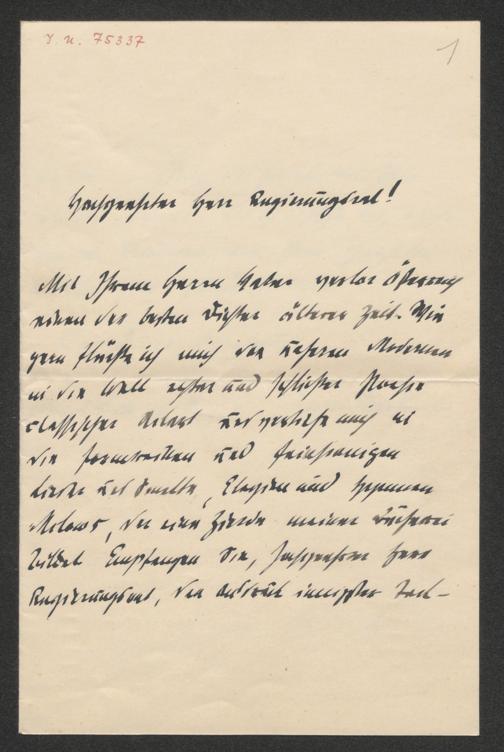 I. N. 75337
1
Hochgeehrter Herr Regierungsrat!
Mit Ihrem Herrn Vater verlor Österreich
einen der besten Dichter älterer Zeit. Wie
gern flüchte ich mich von unseren Modernen
in die Welt echter und schlichter Poesie
classischer und vertiefe mich in
die formreichen und feinsinnigen
Lieder und Sonette, Elegien und Hymnen
Milows, die eine Zierde meiner Bücherei
bildet. Empfangen Sie, hochgeehrter Herr
Regierungsrat, den Ausdruck innigster Teil-